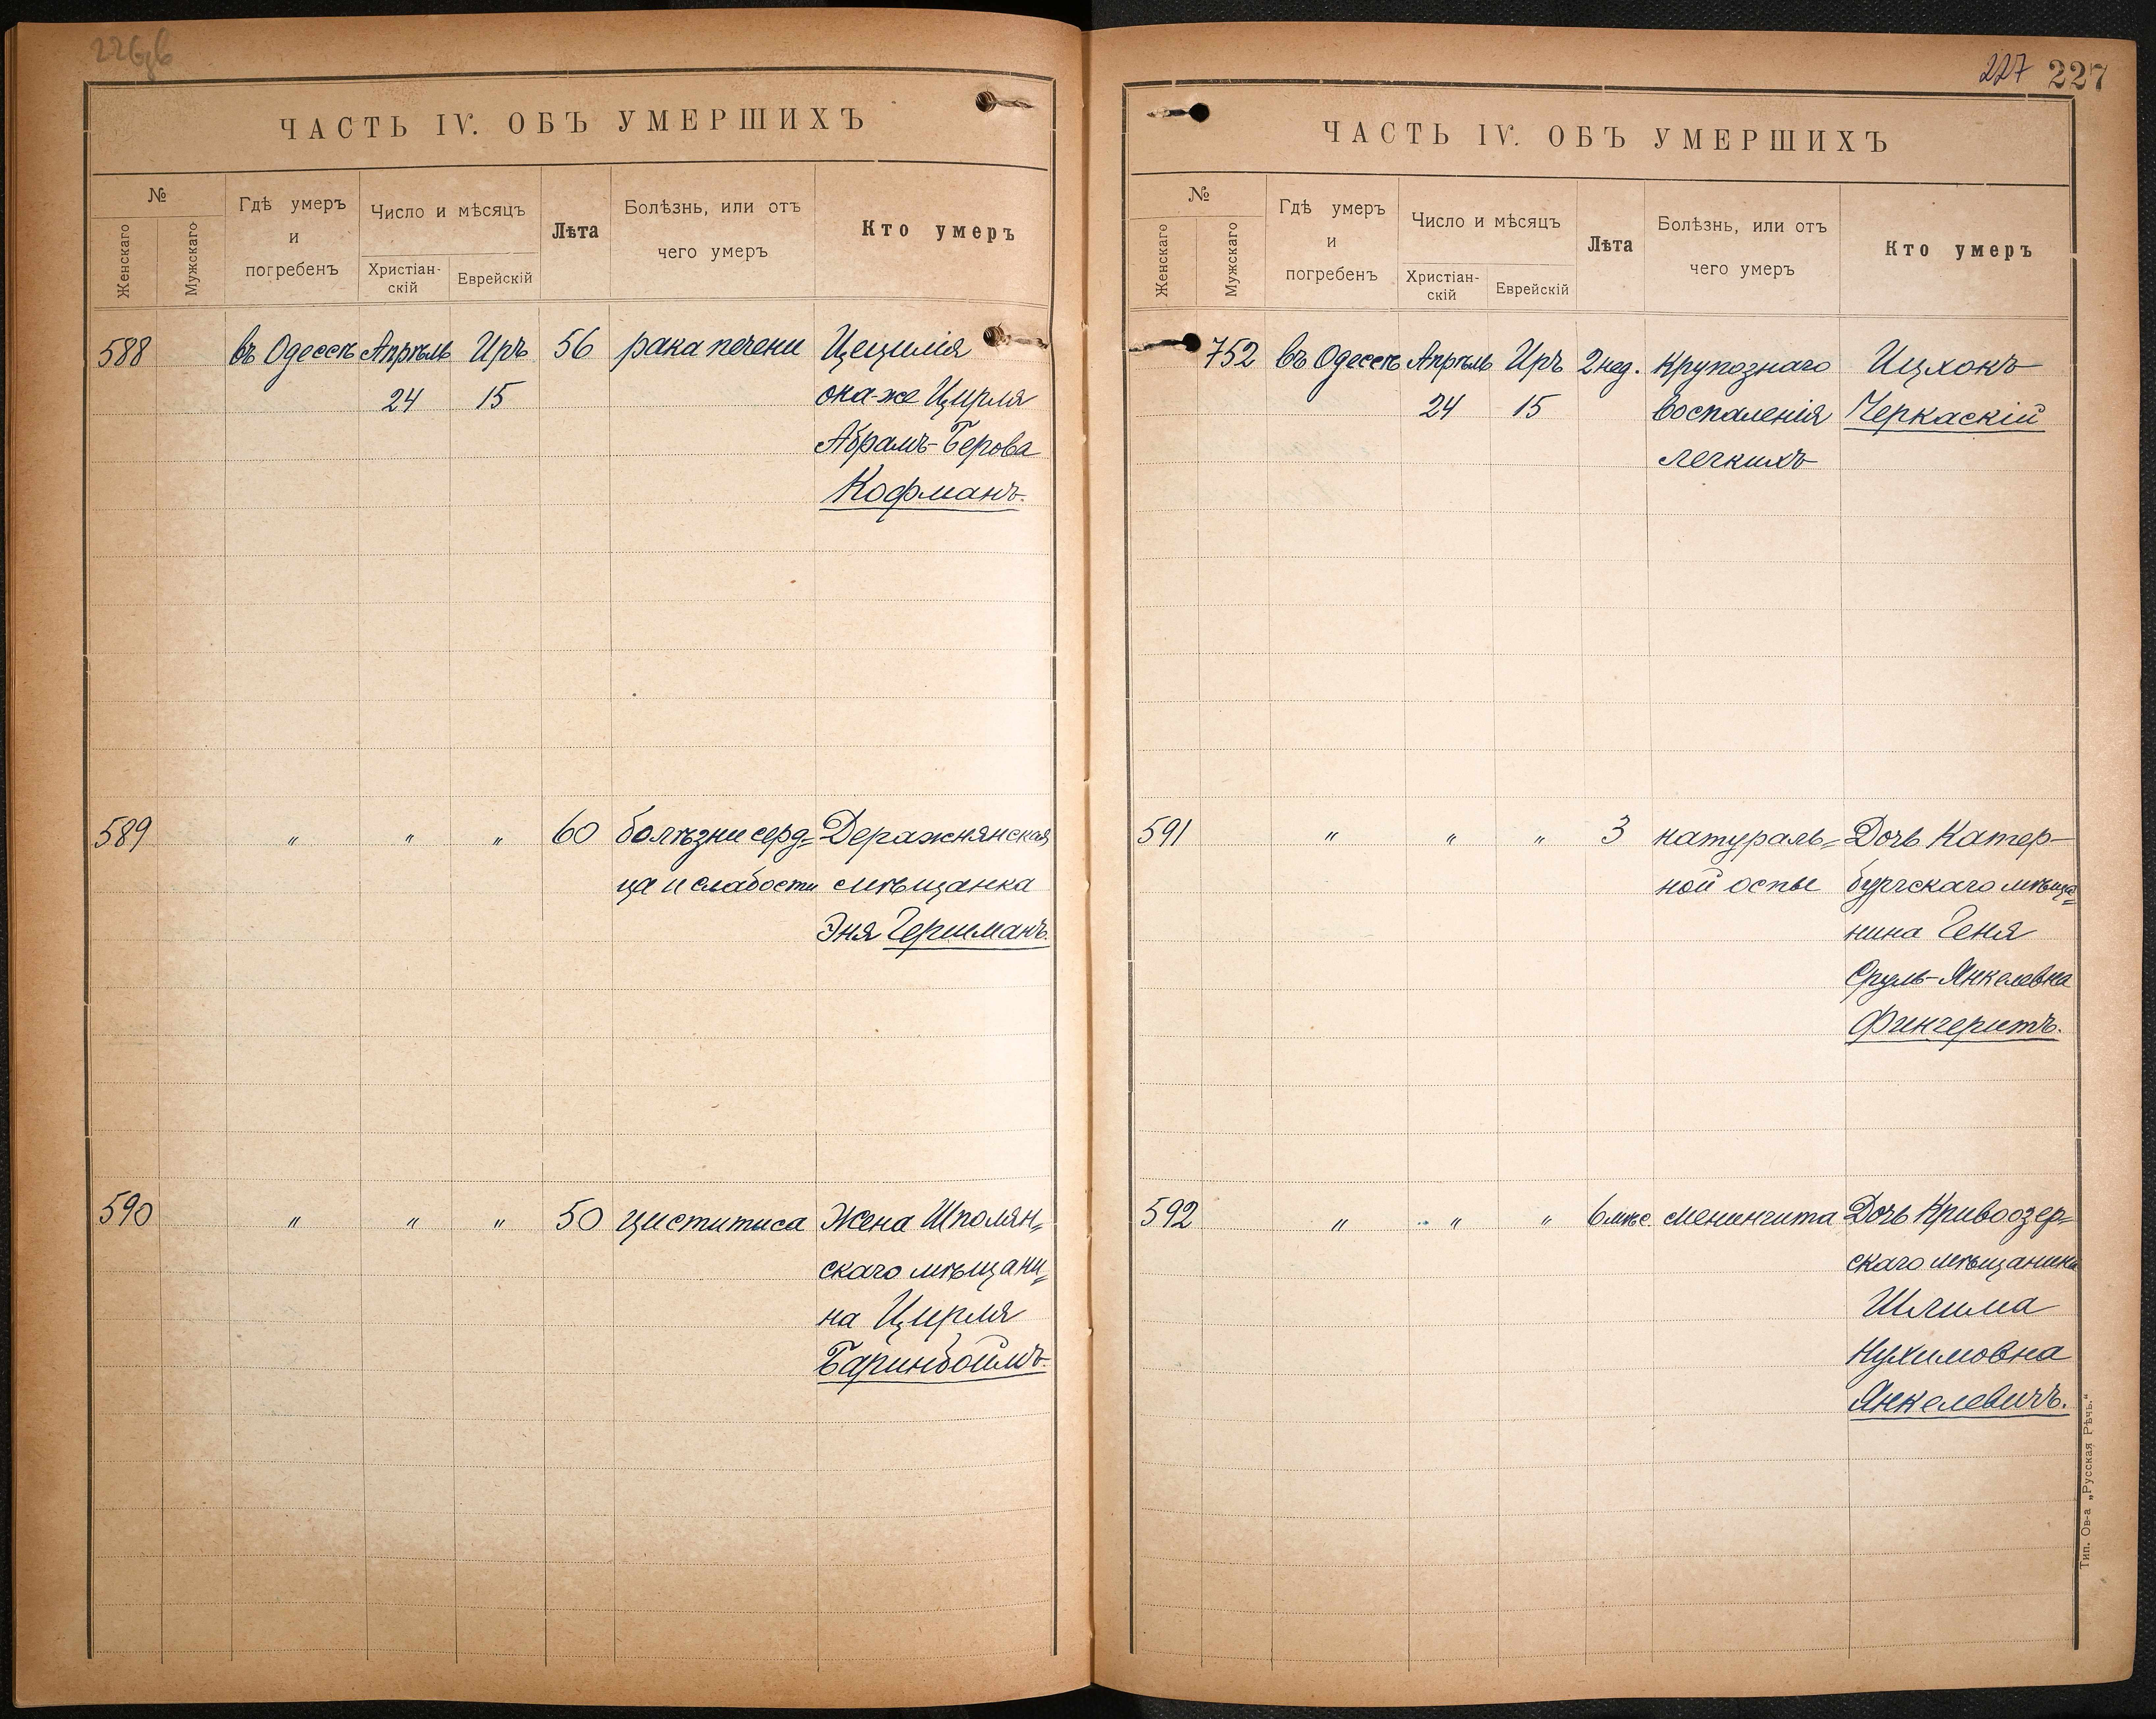 ЧАСТЬ IV. ОБЪ УМЕРШИХЪ
№
Женскаго
Мужскаго
Гдѣ умеръ
и
погребенъ
Число и мѣсяцъ
Христіан-
скій
Еврейскій
Лѣта
Болѣзнь, или отъ
чего умеръ
Кто умеръ
588 въ Одессѣ Апрѣль Иръ 56 рака печени Цецилія
24 15 она-же Цирля
Абрамъ-Берова
Кофманъ.
589 " " " 60 болѣзни серд= Деражнянская
ца и слабости мѣщанка
Эня Гершманъ.
590 " " " 50 циститиса Жена Шполян=
скаго мѣщани=
на Цирля
Баринбоймъ.
227 227
ЧАСТЬ IV. ОБЪ УМЕРШИХЪ
№
Женскаго
Мужскаго
Гдѣ умеръ
и
погребенъ
Число и мѣсяцъ
Христіан-
скій
Еврейскій
Лѣта
Болѣзнь, или отъ
чего умеръ
Кто умеръ
752 въ Одессѣ Апрѣль Иръ 2 нед. крупознаго Ицхокъ
24 15 воспаленія Черкаскій
легкихъ
591 " " " 3 натураль= Дочь Катер-
ной оспы бургскаго мѣща=
нина Геня
Сруль-Янкелевна
Фингеритъ.
592 " " " 6 мѣс. менингита Дочь Кривоозер=
скаго мѣщанина
Шлима
Нухимовна
Янкелевичъ.
Тип. Ов-а „Русская Рѣчь."